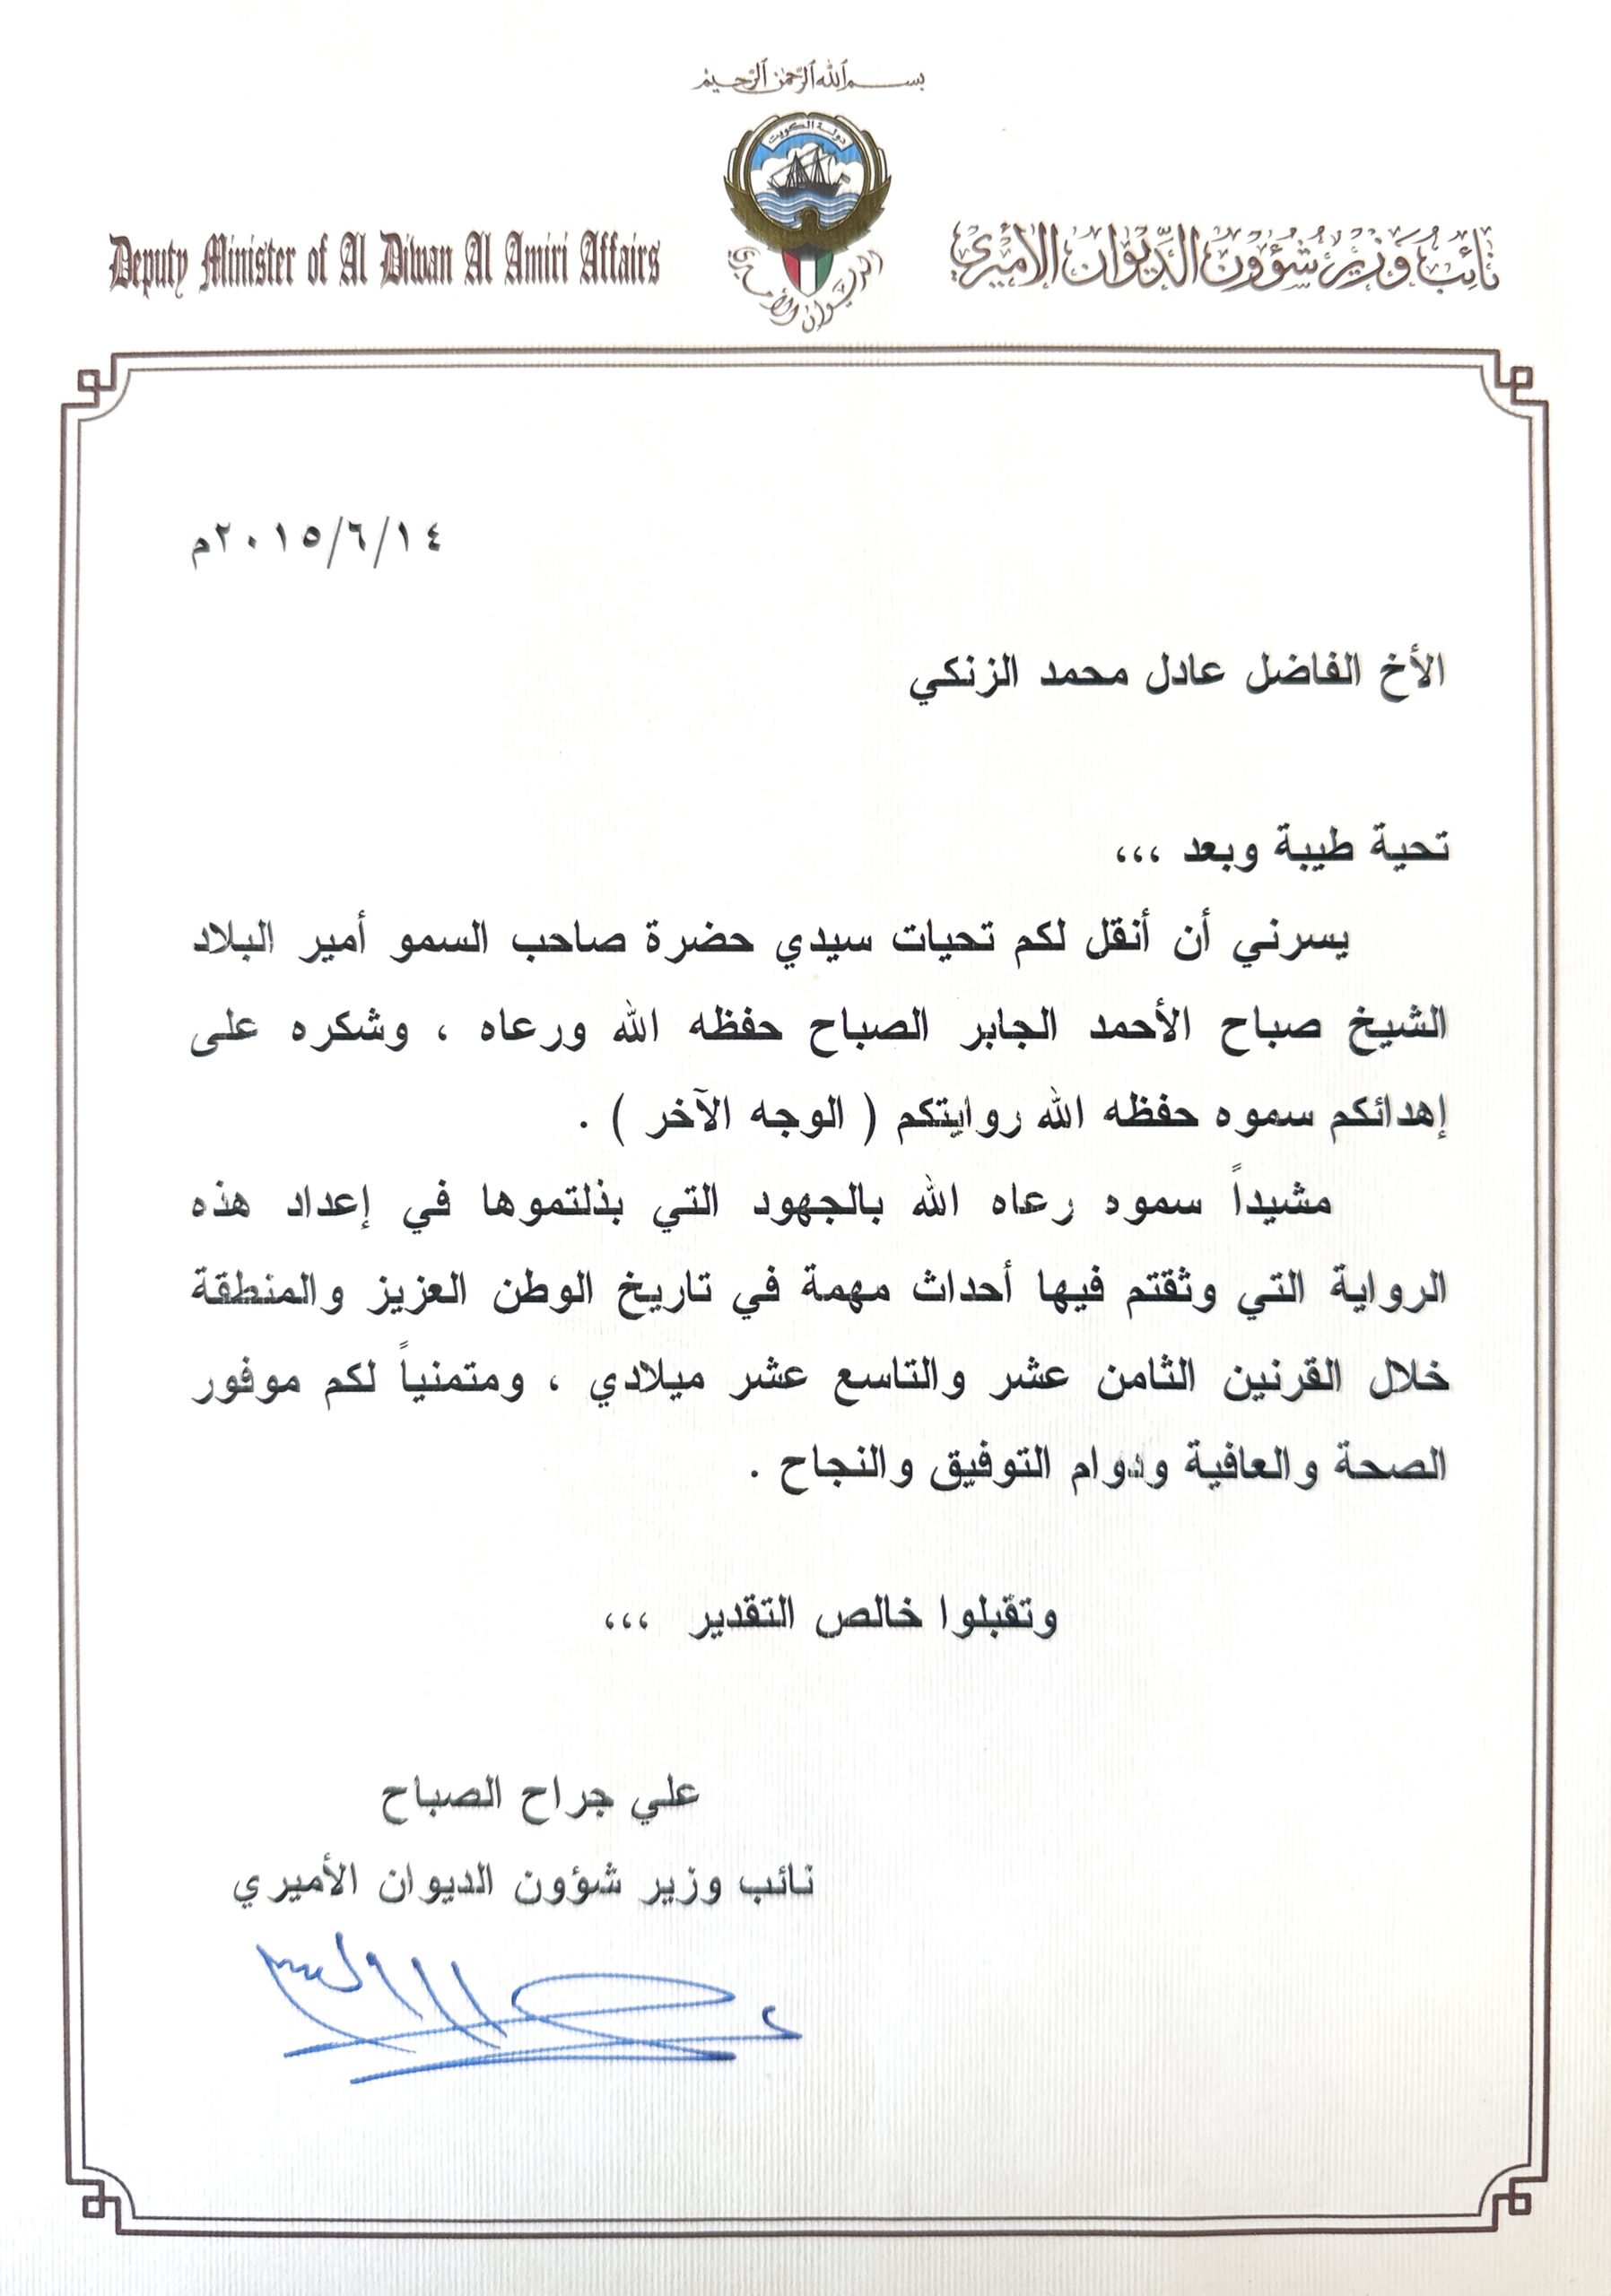 بسم الله الرحمن الرحيم
دولة الكويت
الديوان الأميري
Deputy Minister of Al Diwan Al Amiri Affairs
نائب وزير شؤون الديوان الأميري
٢٠١٥/٦/١٤م
الأخ الفاضل عادل محمد الزنكي
تحية طيبة وبعد ،،،
يسرني أن أنقل لكم تحيات سيدي حضرة صاحب السمو أمير البلاد
الشيخ صباح الأحمد الجابر الصباح حفظه الله ورعاه ، وشكره على
إهدائكم سموه حفظه الله روايتكم ( الوجه الآخر ) .
مشيداً سموه رعاه الله بالجهود التي بذلتموها في إعداد هذه
الرواية التي وثقتم فيها أحداث مهمة في تاريخ الوطن العزيز والمنطقة
خلال القرنين الثامن عشر والتاسع عشر ميلادي ، ومتمنياً لكم موفور
الصحة والعافية ودوام التوفيق والنجاح .
وتقبلوا خالص التقدير ،،،
علي جراح الصباح
نائب وزير شؤون الديوان الأميري